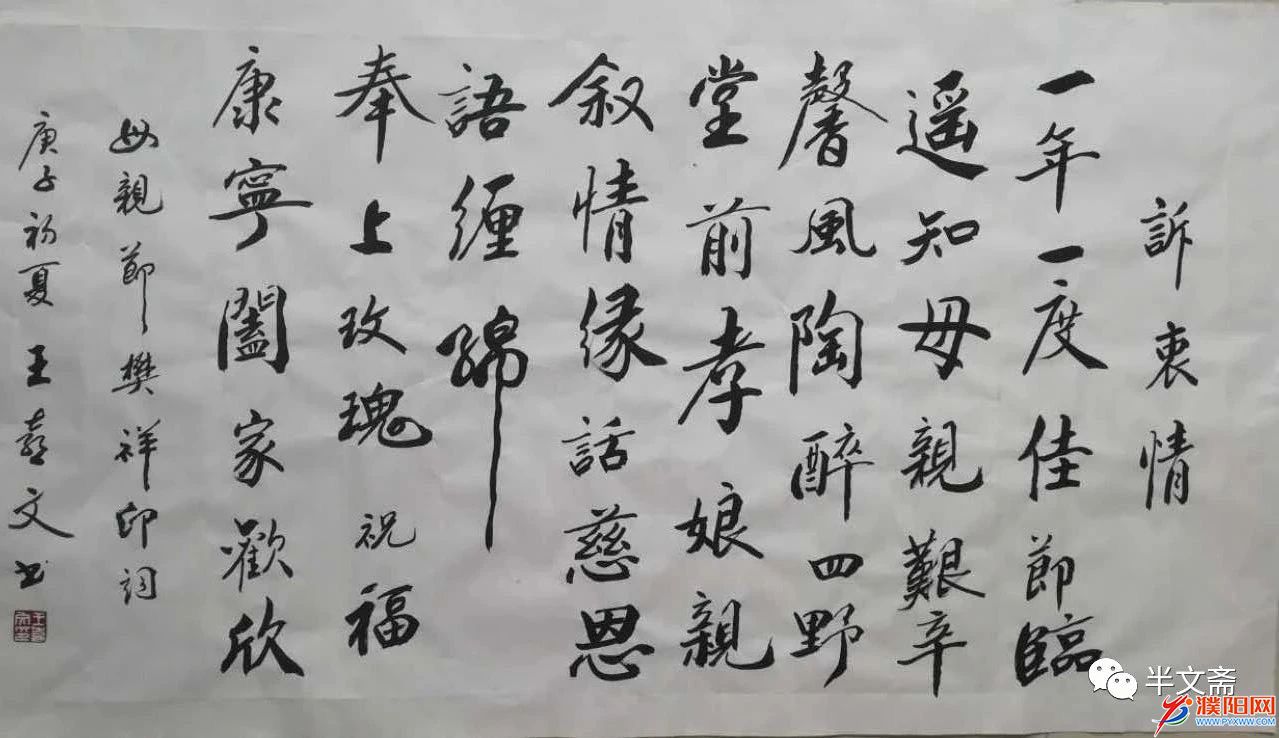 訴衷情
一年一度佳節臨
遥知母親艱辛
馨風陶醉四野
堂前孝娘親
叙情緣話慈恩
語纏綿
奉上玫瑰祝福
康寧闔家歡欣
母親節樊祥印词
庚子初夏王喜文书
半文斋
濮阳网
WWW.PYXWW.COM